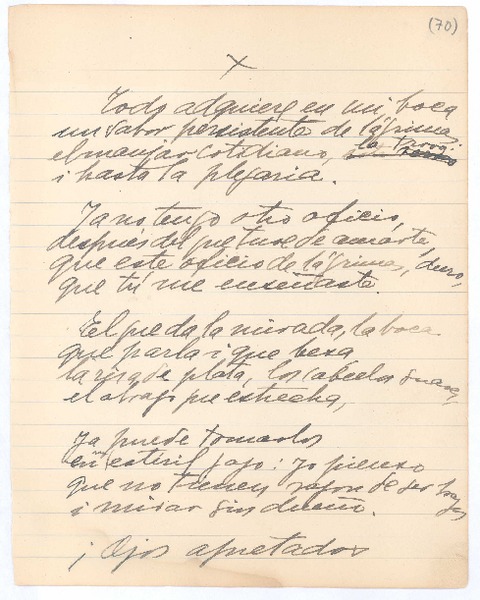 (70)
X
Todo adquiere en mi boca
un sabor persistente de lágrimas:
el manjar cotidiano, la trova
i hasta la plegaria.
Ya no tengo otro oficio,
después del que tuve de amarte,
que este oficio de lágrimas, duro,
que tú me enseñaste.
El que da la mirada, la boca
que parla i que besa
la risa de plata, los cabellos suaves,
el abrazo que estrecha,
Ya puede tomarlos
en mi estéril gajo: yo pienso
que no tienen razón de ser
i mirar sin dueño.
¡Ojos apretados